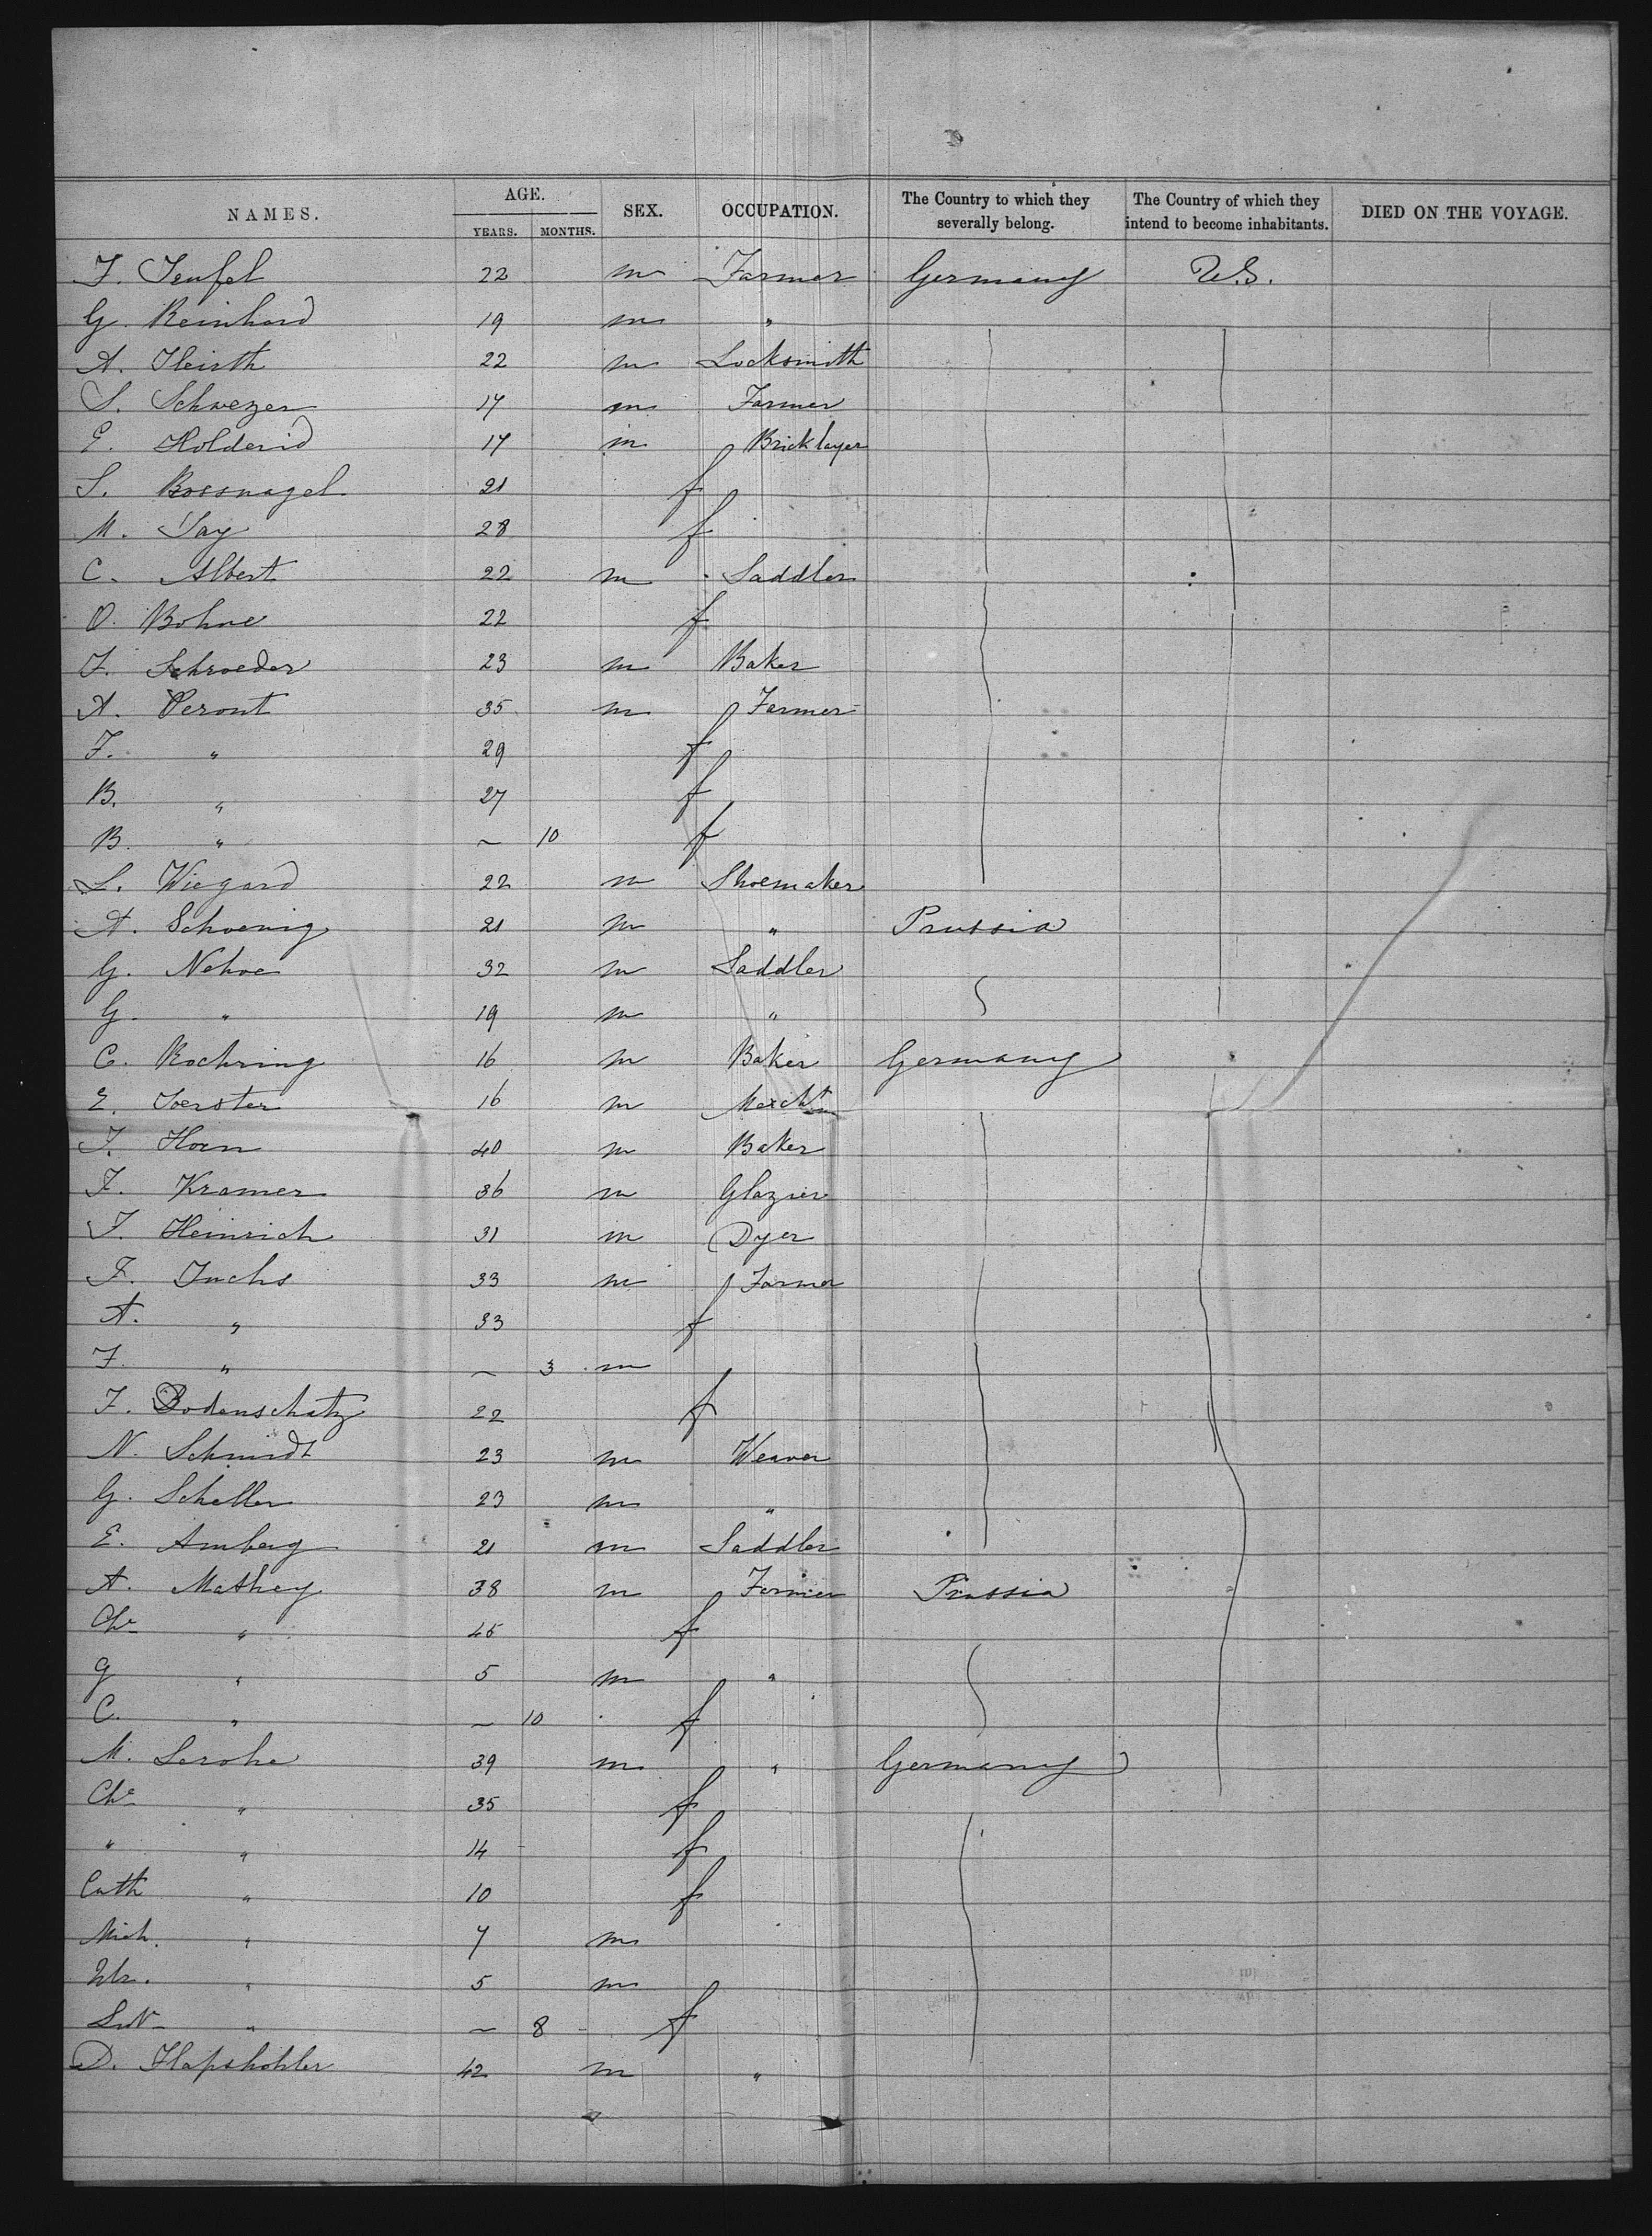 NAMES. AGE. YEARS. MONTHS. SEX. OCCUPATION. The Country to which they severally belong. The Country of which they intend to become inhabitants. DIED ON THE VOYAGE.
F. Teufel 22 m Farmer Germany U.S.
G. Reinhard 19 m "
A. Fleisth 22 m Locksmith
S. Schwezer 17 m Farmer
E. Holderid 17 m Bricklayer
S. Bossnagel 21 f
M. Say 28 f
C. Albert 22 m Saddler
O. Bohne 22 f
F. Schroeder 23 m Baker
A. Peront 35 m Farmer
F. " 29 f
B. " 27 f
B. " ~ 10 f
L. Wiegard 22 m Shoemaker
A. Schoenig 21 m " Prussia
G. Nehoe 32 m Saddler
G. " 19 m "
C. Roehring 16 m Baker Germany
E. Foerster 16 m Mercht
F. Horn 40 m Baker
F. Kramer 36 m Glazier
F. Heinrich 31 m Dyer
F. Fuchs 33 m Farmer
A. " 33 f
F. " ~ 3 m
F. Bodenschatz 22 f
N. Schmidt 23 m Weaver
G. Scheller 23 m "
E. Amberg 21 m Saddler
A. Mathey 38 m Farmer Prussia
Chr " 45 f
G " 5 m "
C. " ~ 10 f
M. Lerohe 39 m " Germany
Chr " 35 f
" " 14 f
Cath " 10 f
Mich. " 7 m
" 5 m
" ~ 8 f
D. Hapshohler 42 m "